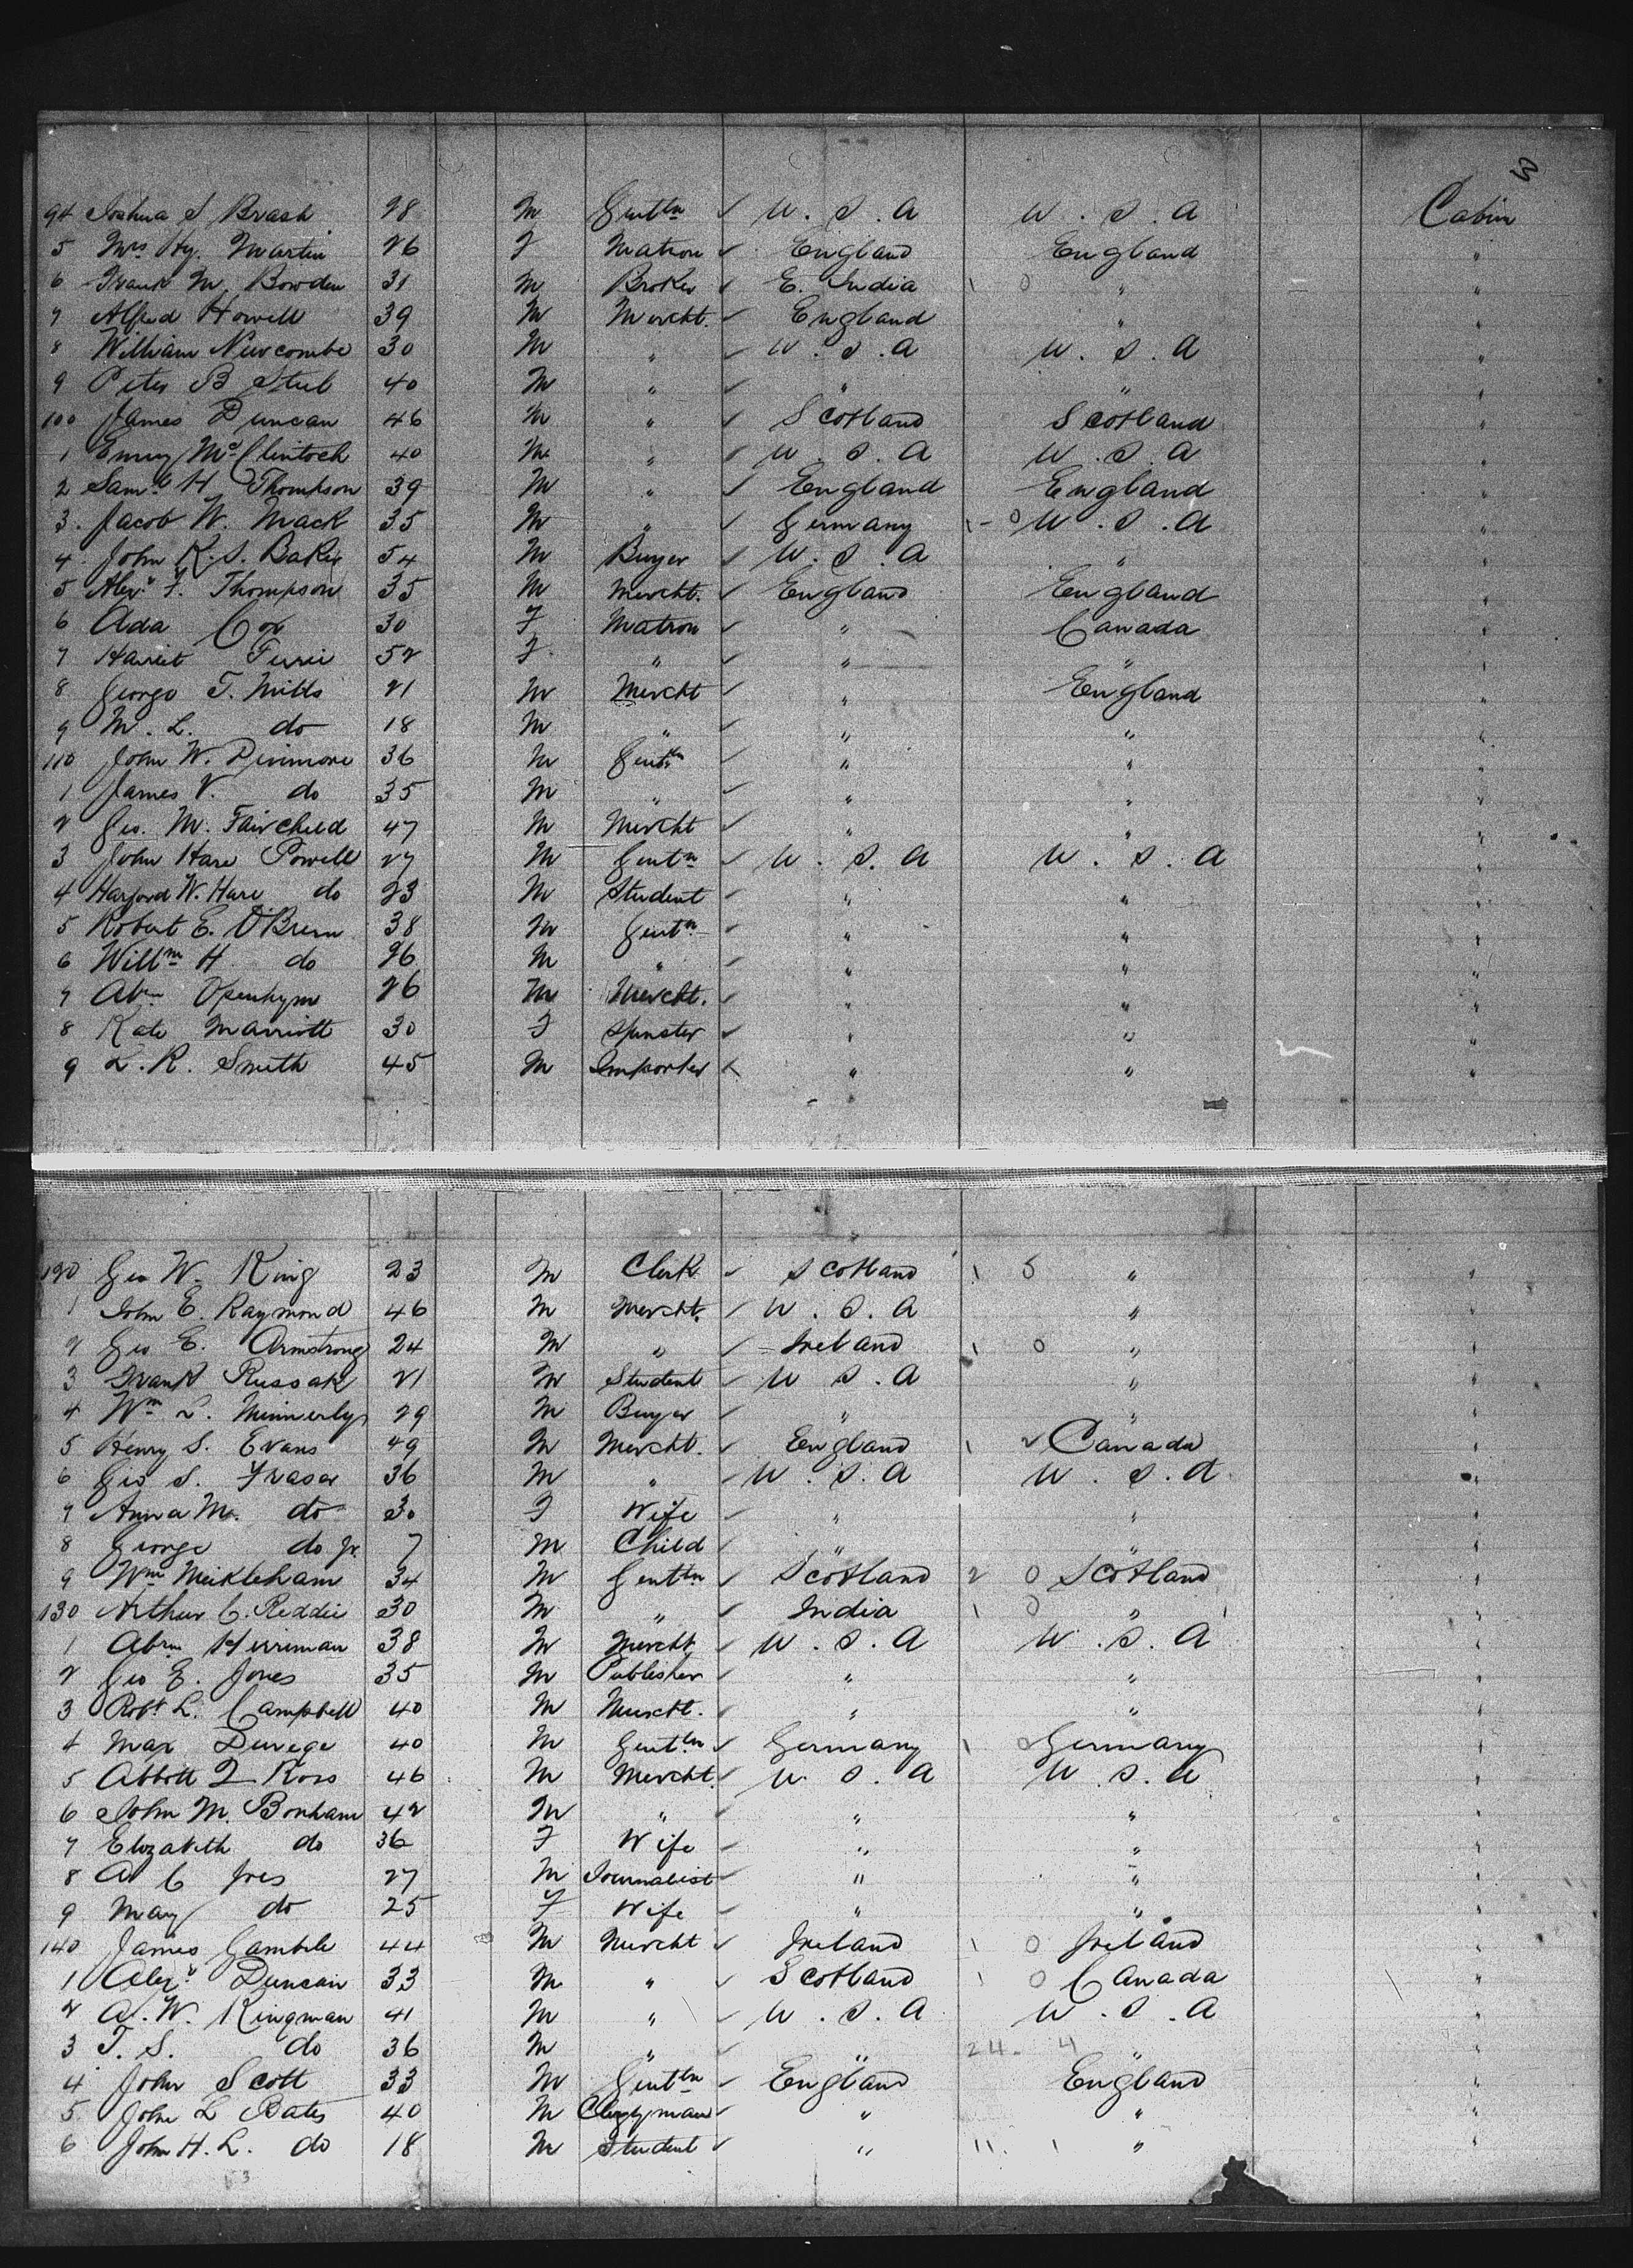 3
94 Joshua S. Brash 28 M Gentln ✓ U.S.A U.S.A Cabin
5 Mrs Hy. Martin 26 F Matron ✓ England England "
6 Frank M. Bowden 31 M Broker ✓ E. India 1 0 " "
7 Alfred Howell 39 M Mercht. ✓ England " "
8 William Newcombe 30 M " ✓ U.S.A U.S.A "
9 Peter B 40 M " ✓ " " "
100 James Duncan 46 M " ✓ Scotland Scotland "
1 Emery McClintock 40 M " ✓ U.S.A U.S.A "
2 Saml H Thompson 39 M " ✓ England England "
3. Jacob W. Mack 35 M " ✓ Germany 1-0 U.S.A "
4 John R. S. Baker 54 M Buyer ✓ U.S.A " "
5 Alexr F. Thompson 35 M Mercht. ✓ England England "
6 Ada Cox 30 F Matron ✓ " Canada "
7 Harriet 52 F. " ✓ " " "
8 George T. Mills 21 M Mercht ✓ " England "
9 M. L. do 18 M " ✓ " " "
110 John W. Dinmore 36 M Gentln ✓ " " "
1 James V. do 35 M " ✓ " " "
2 Geo. M. Fairchild 47 M Mercht ✓ " " "
3 John Hare Powell 27 M Gentn ✓ U.S.A U.S.A "
4 Harford W. Hare do 23 M Student ✓ " " "
5 Robert E. O'Brien 38 M Gentn ✓ " " "
6 Willm H do 26 M " ✓ " " "
7 Abm Openhym 26 M Mercht. ✓ " " "
8 Kate Marriott 30 F Spinster ✓ " " "
9 L. R. Smith 45 M Importer ✓ " " "
120 Geo W. King 23 M Clerk ✓ Scotland 1 5 " "
1 John E. Raymond 46 M Mercht. ✓ U.S.A " "
2 Geo E. Armstrong 24 M " ✓ Ireland 1 0 " "
3 Frank Russak 21 M Student ✓ U.S.A " "
4 Wm L. Minnerly 29 M Buyer ✓ " " "
5 Henry S. Evans 49 M Mercht. ✓ England 1 2 Canada "
6 Geo S. Fraser 36 M " ✓ U.S.A U.S.A "
7 Anna M. do 30 F Wife ✓ " " "
8 George do Jr. 7 M Child ✓ " " "
9 Wm Meikleham 34 M Gentln ✓ Scotland 2 0 Scotland "
130 Arthur C. Reddie 30 M " ✓ India 1 0 " "
1 Abrm Herriman 38 M Mercht ✓ U.S.A U.S.A "
2 Geo E. Jones 35 M Publisher ✓ " " "
3 Robt L. Campbell 40 M Mercht. ✓ " " "
4 Max 40 M Gentln ✓ Germany 1 0 Germany "
5 Abbott Q Ross 46 M Mercht. ✓ U.S.A U.S.A "
6 John M. Bonham 42 M " ✓ " " "
7 Elizabeth do 36 F Wife ✓ " " "
8 A C Ives 27 M Journalist ✓ " " "
9 May do 25 F Wife ✓ " " "
140 James Gamble 44 M Mercht ✓ Ireland 1 0 Ireland "
1 Alexr Duncan 33 M " ✓ Scotland 1 0 Canada "
2 A. W. Kingman 41 M " ✓ U.S.A U.S.A "
3 T. S. do 36 M " ✓ " 24. 4 " "
4 John Scott 33 M Gentln ✓ England England "
5 John L Bates 40 M Clergyman ✓ " " "
6 John H. L. do 18 M Student ✓ " 11. 1 " "